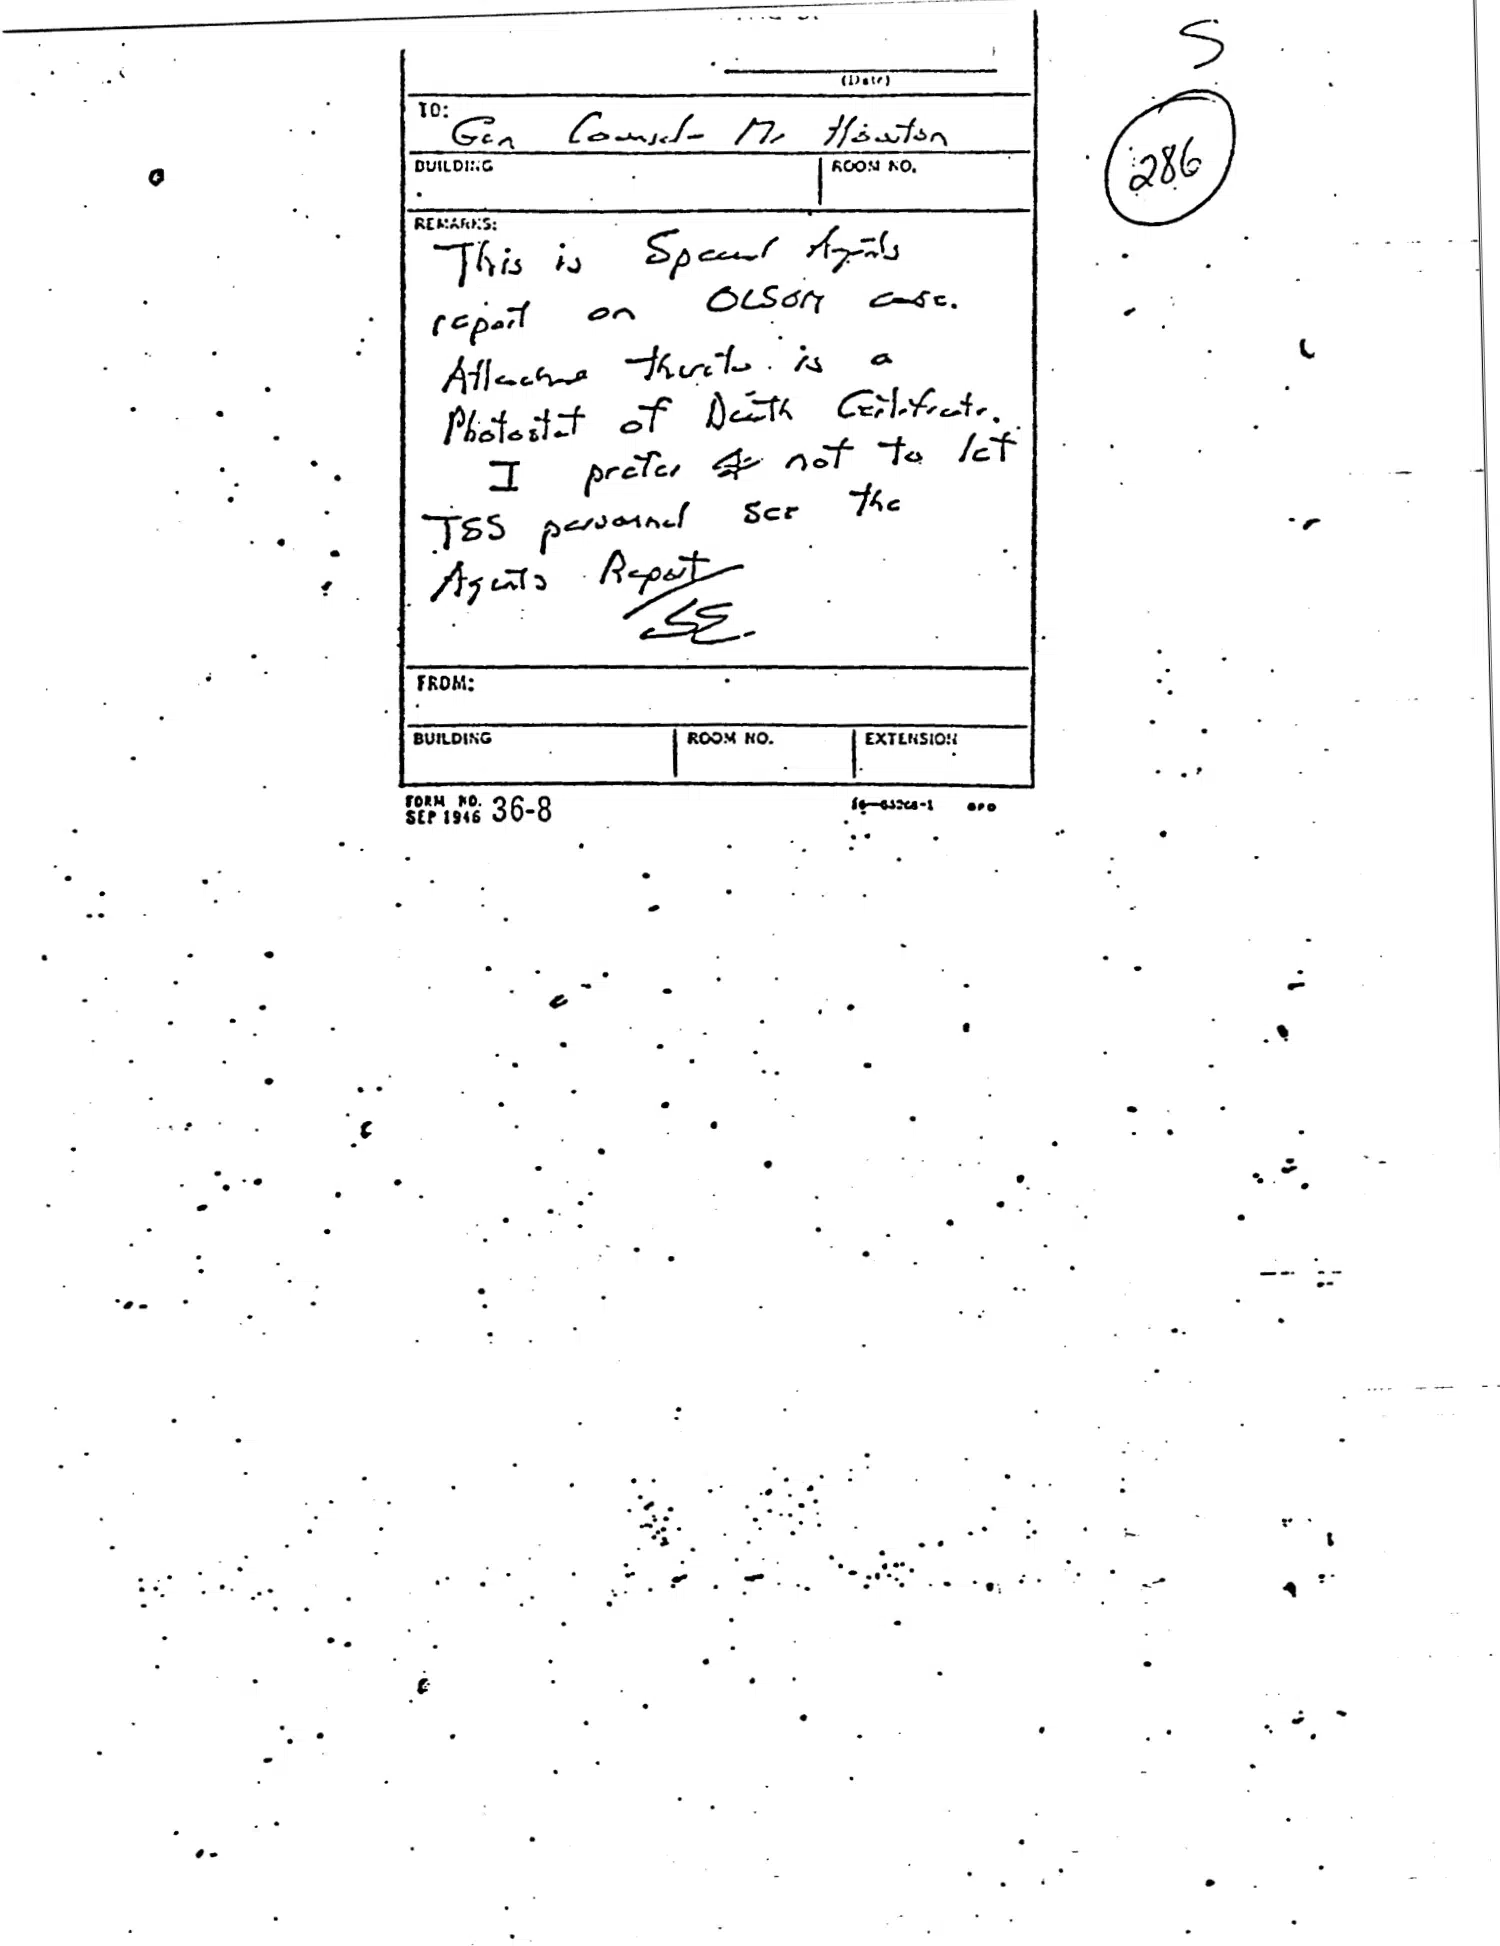 S
286
(Date)
TO:
Gen Counsel- Mr Houston
BUILDING
ROOM NO.
REMARKS:
This is Special Agents
report on OLSON case.
Attached thereto is a
Photostat of Death Certificate.
I prefer not to let
TSS personnel see the
Agents Report
SE.
FROM:
BUILDING
ROOM NO.
EXTENSION
FORM NO. 36-8
SEP 1946
GPO